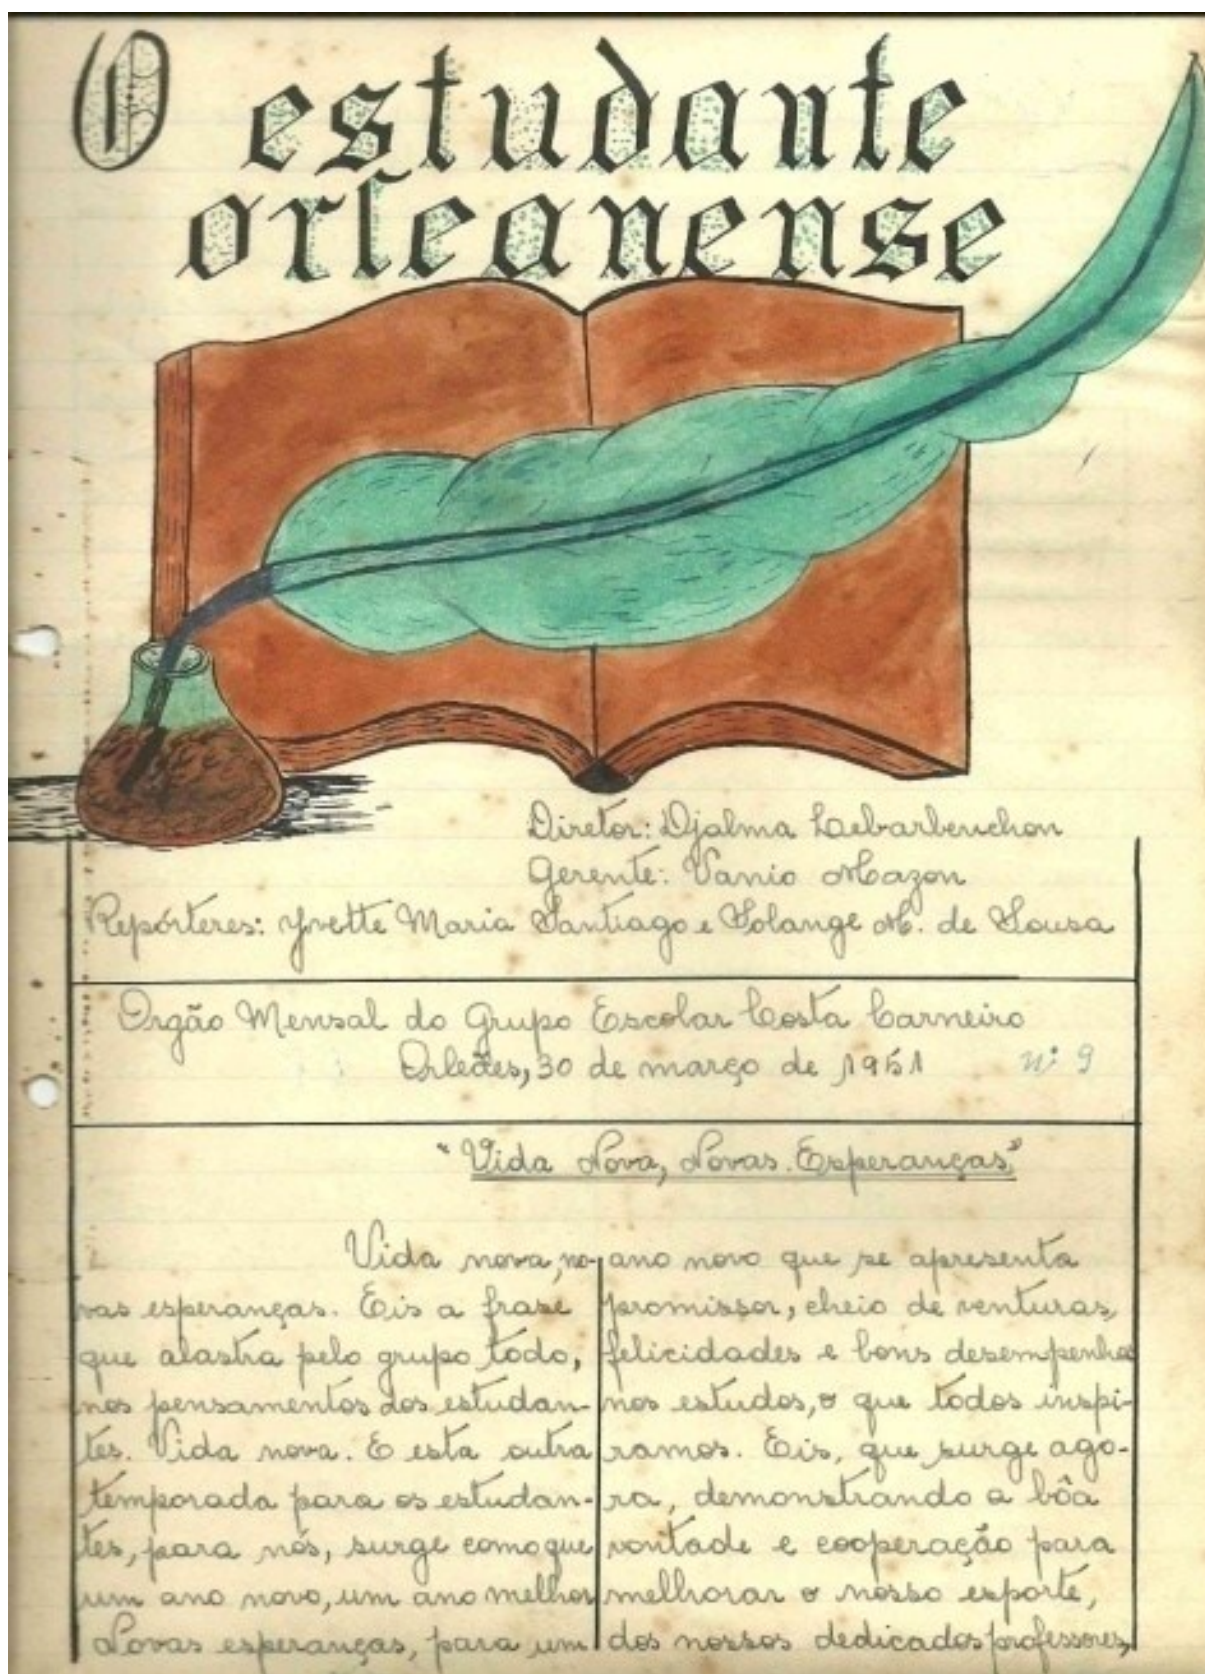 O estudante
orleanense
Diretor: Djalma Lebarbenchon
Gerente: Vanio Mazon
Repórteres: Yvette Maria Santiago e Solange M. de Sousa
Orgão Mensal do Grupo Escolar Costa Carneiro
Orleães, 30 de março de 1951 nº 9
"Vida Nova, Novas Esperanças"
Vida nova, no-
vas esperanças. Eis a frase
que alastra pelo grupo todo,
nos pensamentos dos estudan-
tes. Vida nova. E esta outra
temporada para os estudan-
tes, para nós, surge como que
um ano novo, um ano melhor
Novas esperanças, para um
ano novo que se apresenta
promissor, cheio de venturas,
felicidades e bons desempenhos
nos estudos, o que todos inspi-
ramos. Eis, que surge ago-
ra, demonstrando a bôa
vontade e cooperação para
melhorar o nosso esporte,
dos nossos dedicados professores,